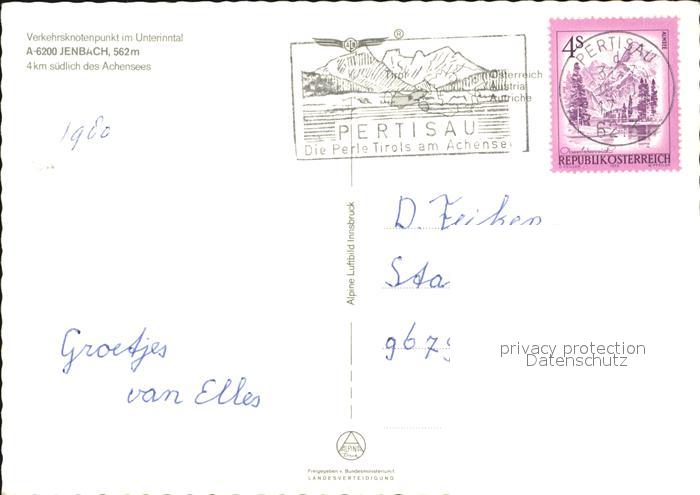 Verkehrsknotenpunkt im Unterinntal
A-6200 JENBACH, 562 m
4 km südlich des Achensees
1980
®
Tirol
Österreich
Austria
Autriche
PERTISAU
Die Perle Tirols am Achensee
4S
ALMSEE
PERTISAU
62
REPUBLIK ÖSTERREICH
Alpine Luftbild Innsbruck
D. Feiken
Sta
967
privacy protection
Datenschutz
Groetjes
van Elles
ALPINE
Freigegeben v. Bundesministerium f.
LANDESVERTEIDIGUNG